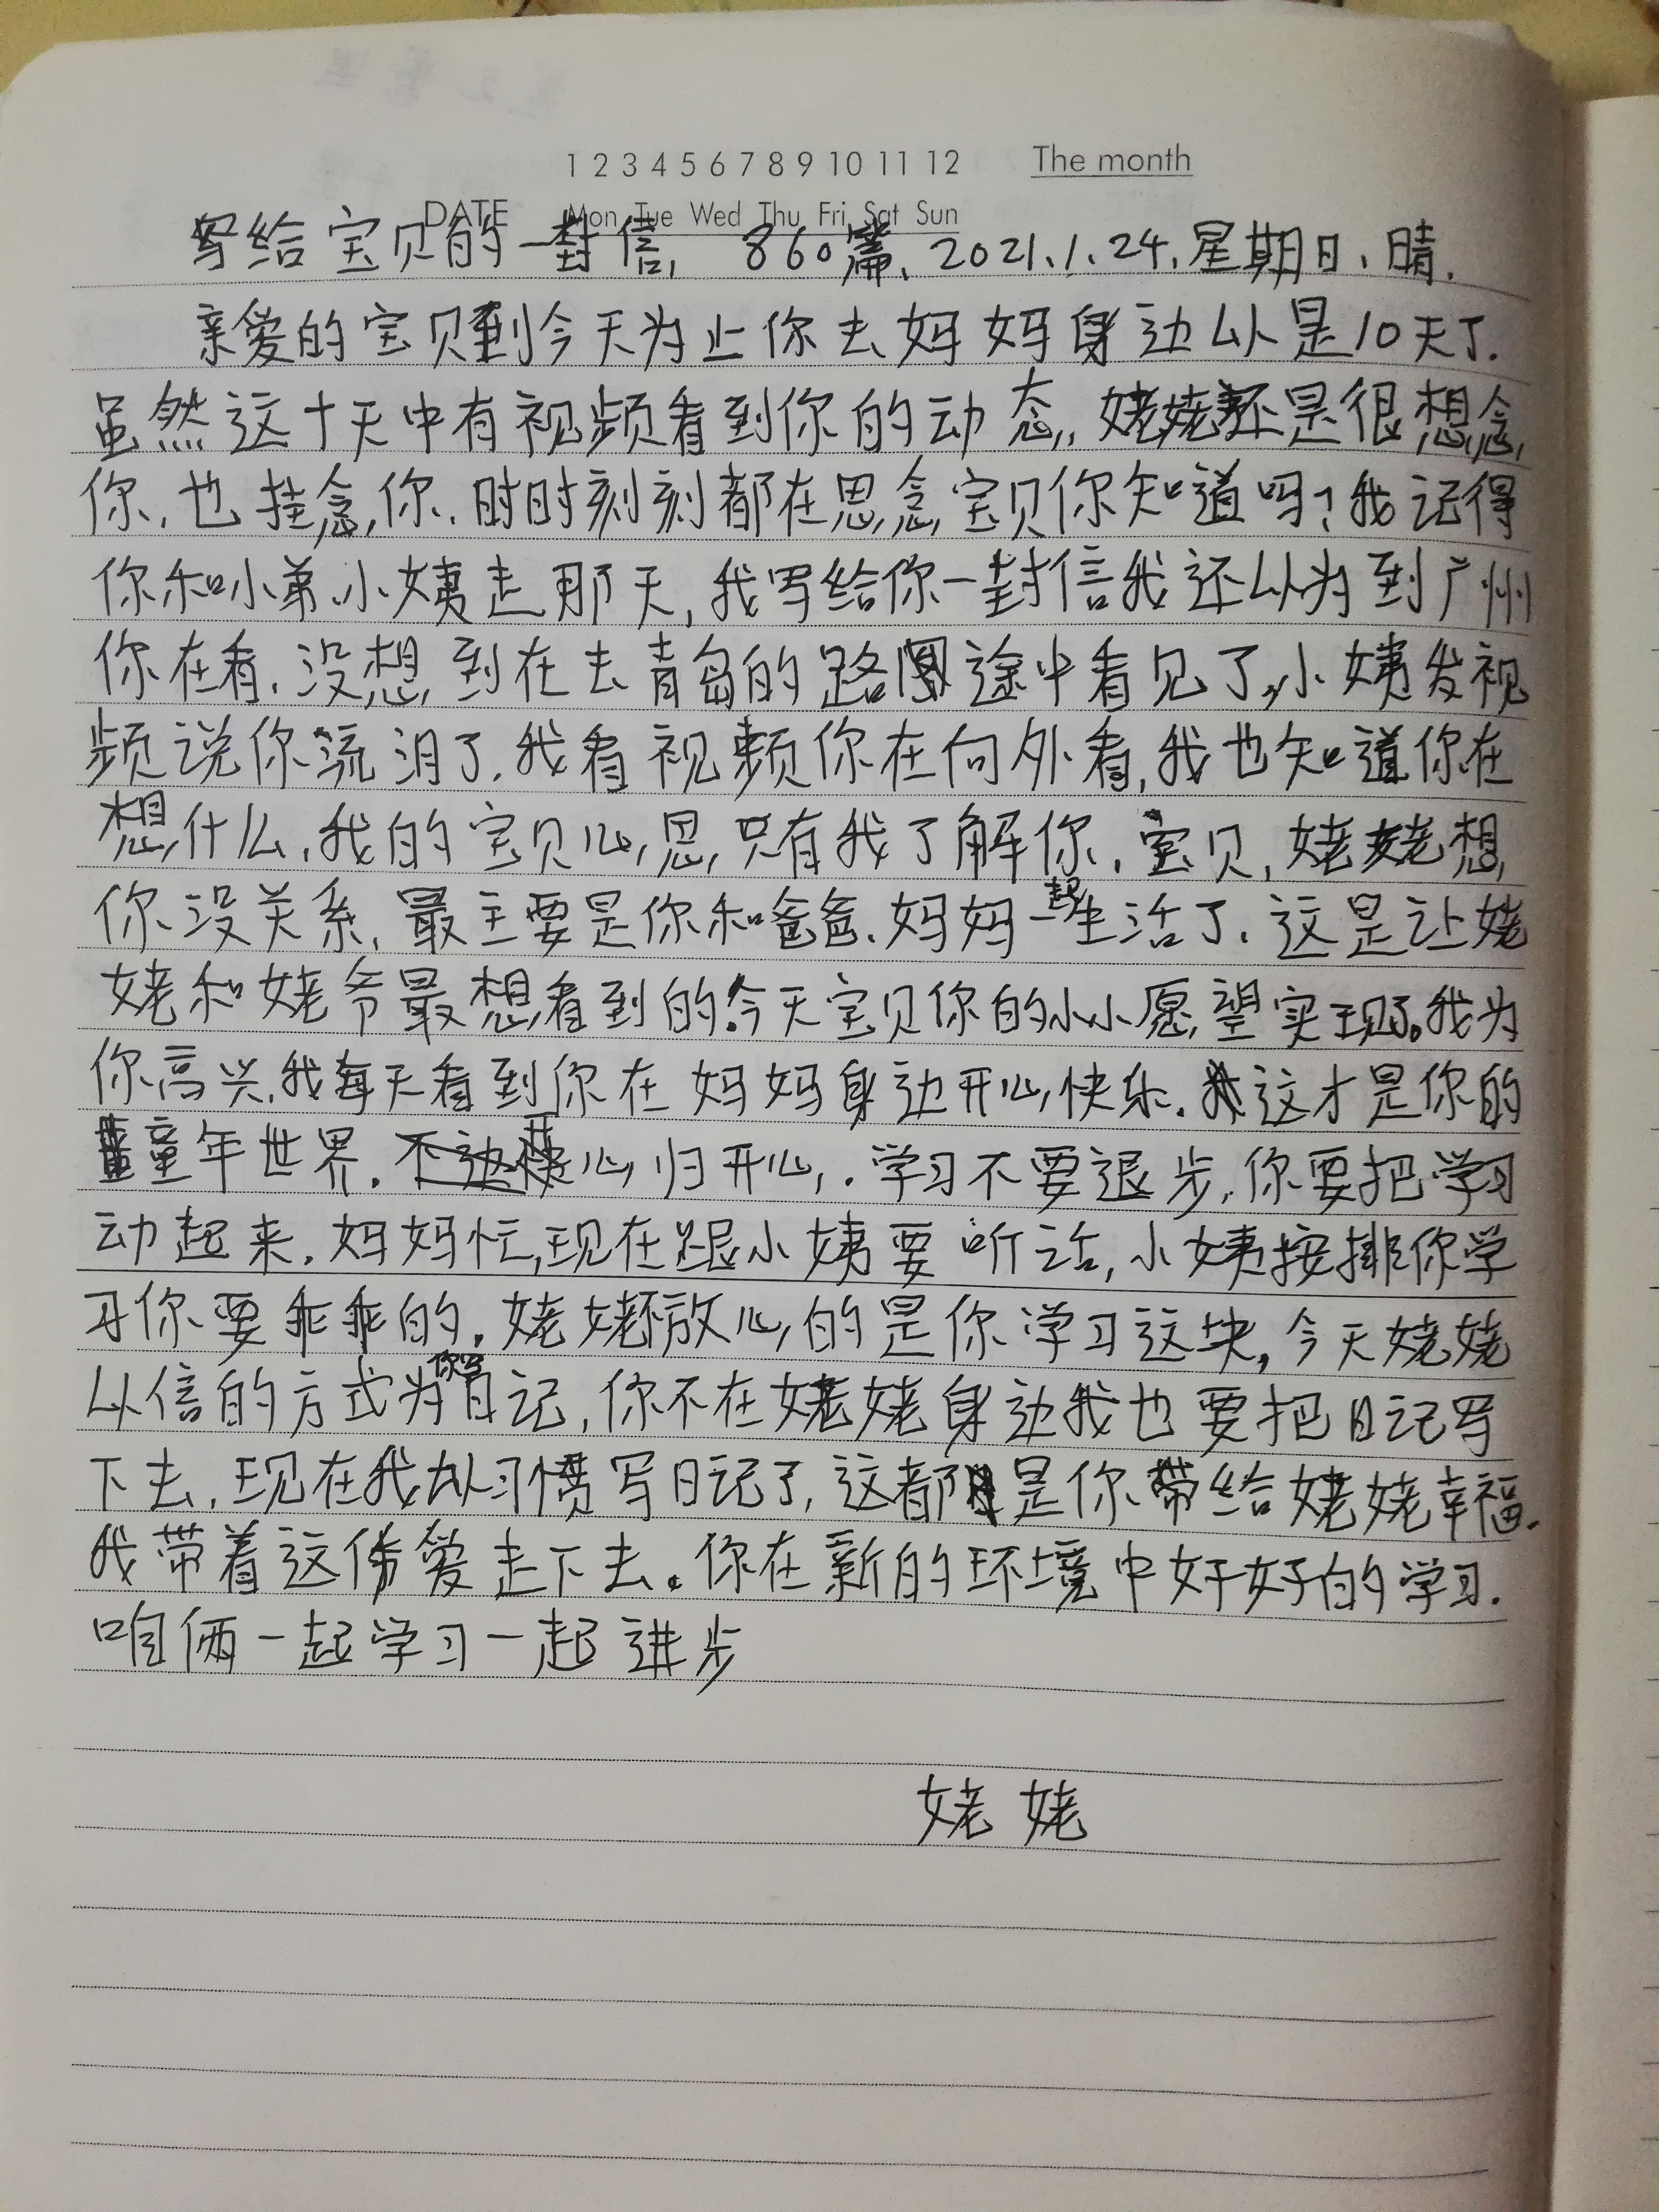 1 2 3 4 5 6 7 8 9 10 11 12 The month
DATE Mon Tue Wed Thu Fri Sat Sun
写给宝贝的一封信, 860篇、2021.1.24.星期日、晴.
亲爱的宝贝到今天为止你去妈妈身边以是10天了.
虽然这十天中有视频看到你的动态,姥姥还是很想念
你,也挂念你.时时刻刻都在思念宝贝你知道吗?我记得
你和小弟、小姨走那天,我写给你一封信我还以为到广州
你在看.没想到在去青岛的路途中看见了,小姨发视
频说你流泪了.我看视频你在向外看,我也知道你在
想什么,我的宝贝心思只有我了解你.宝贝,姥姥想
你没关系,最主要是你和爸爸.妈妈一起生活了.这是让姥
姥和姥爷最想看到的.今天宝贝你的小小愿望实现了。我为
你高兴.我每天看到你在妈妈身边开心快乐.这才是你的
童年世界.开心归开心,.学习不要退步.你要把学习
动起来.妈妈忙,现在跟小姨要听话,小姨按排你学
习你要乖乖的.姥姥不放心的是你学习这块,今天姥姥
以信的方式为你写日记,你不在姥姥身边我也要把日记写
下去,现在我以习惯写日记了,这都是你带给姥姥幸福.
我带着这份爱走下去。你在新的环境中好好的学习.
咱俩一起学习一起进步
姥姥